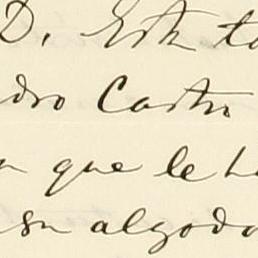 D. Este to
dro Castro
n que le h
su algodo